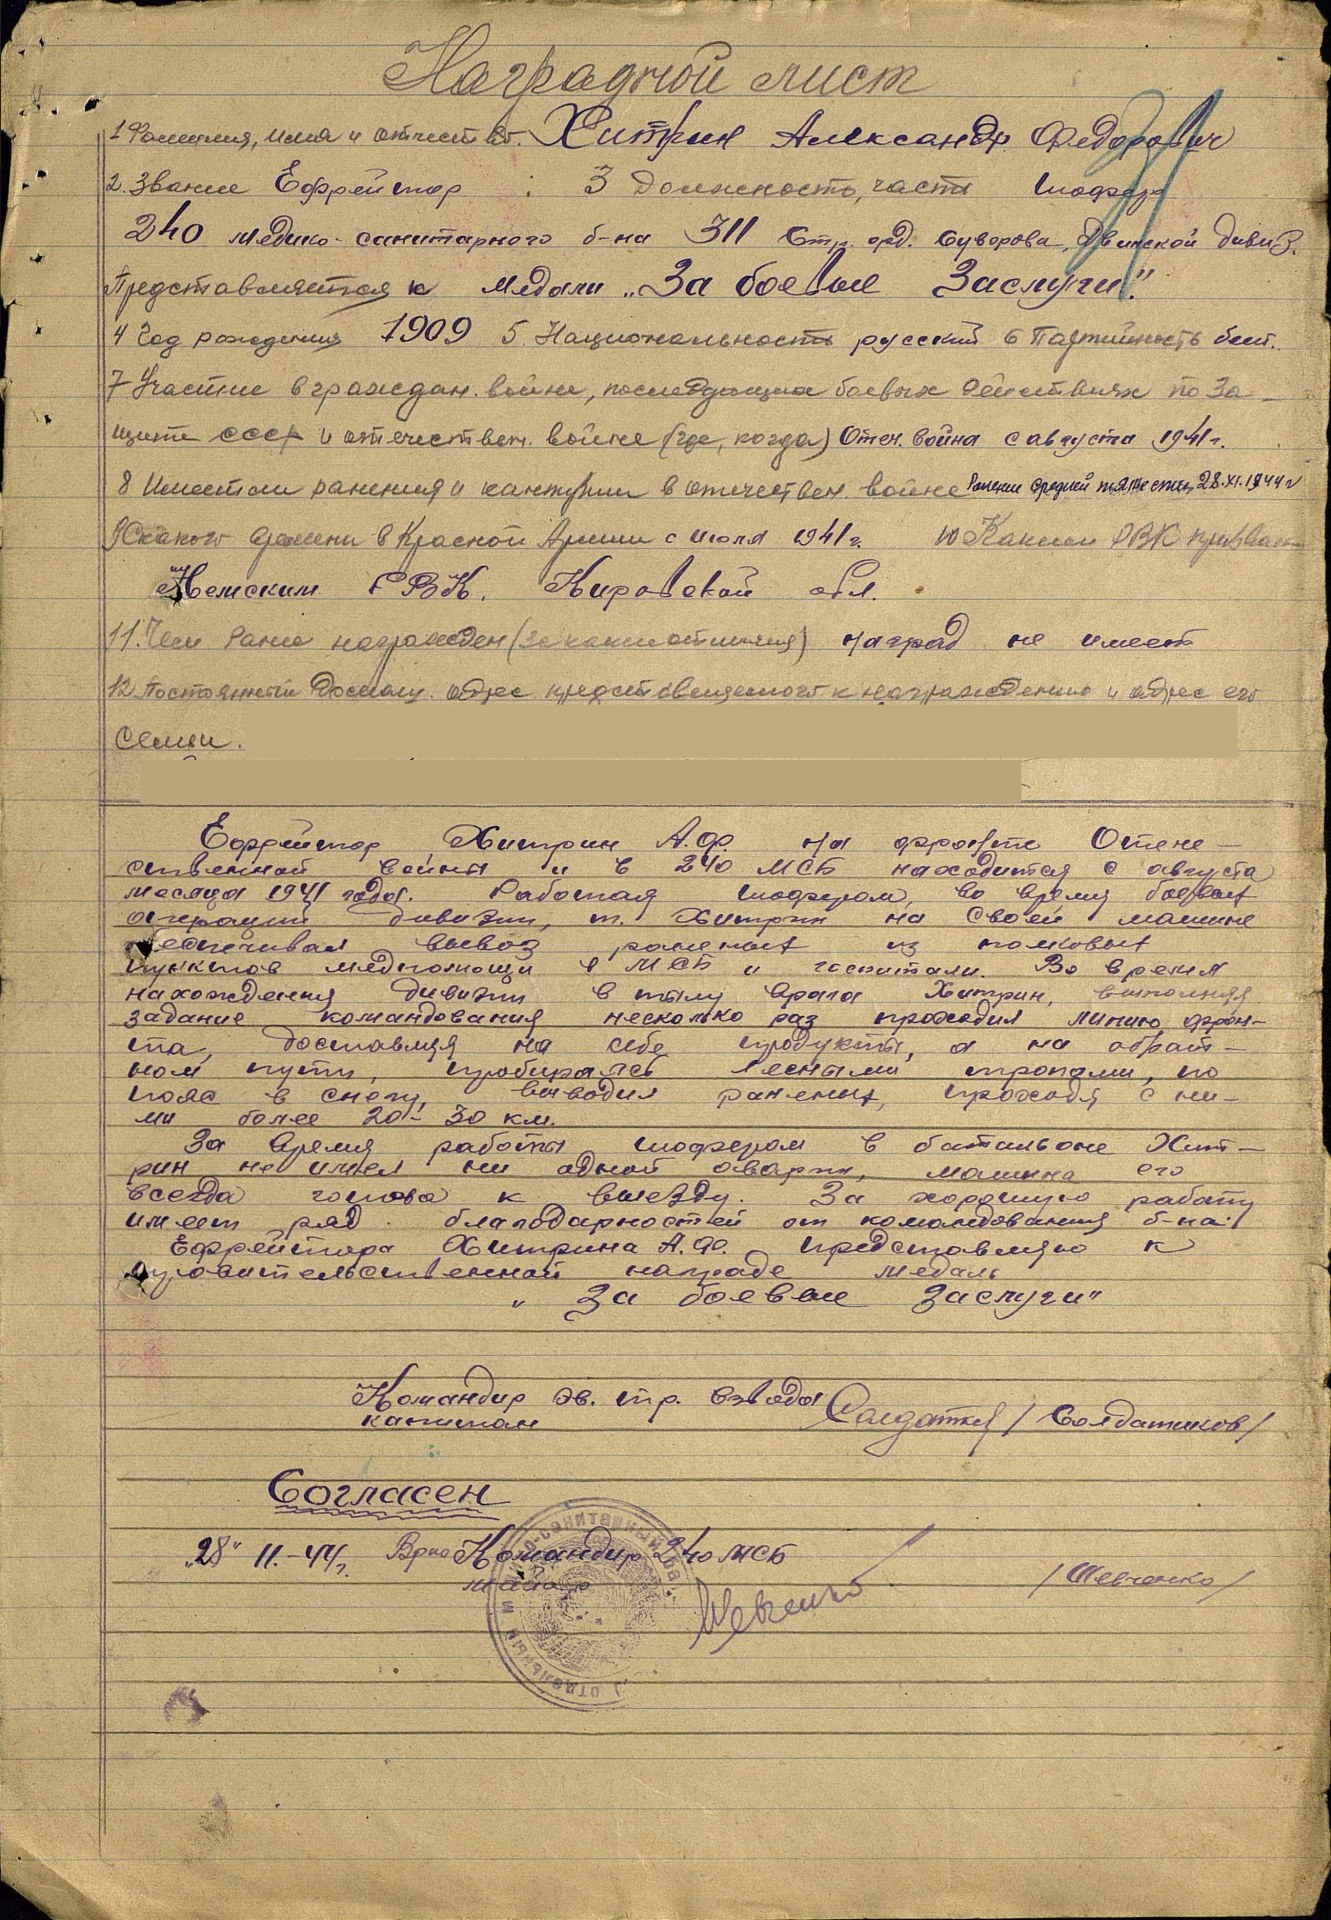 Наградной лист
1 Фамилия, имя и отчество. Хитрин Александр Федорович
2. Звание Ефрейтор ; 3 Должность, часть шофер
240 медико-санитарного б-на 311 Стр. орд. Суворова, Двинской дивиз.
Представляется к медали „За боевые Заслуги."
4 Год рождения 1909 5. Национальность русский 6 Партийность бесп.
7 Участие в граждан. войне, последующих боевых действиях по за-
щите СССР и отечествен. войне (где, когда) Отеч. война с августа 1941 г.
8 Имеет ли ранения и контузии в отечествен. войне Ранение средней тяжести 28.XI.1944 г
9 С какого времени в Красной Армии с июля 1941 г. 10 Каким РВК призван
Немским РВК. Кировской обл.
11. Чем ранее награжден (за какие отличия) наград не имеет
12 Постоянный домашн. адрес представляемого к награждению и адрес его
семьи.
Ефрейтор Хитрин А.Ф. на фронте Отече-
ственной войны и в 240 МСБ находится с августа
месяца 1941 года. Работая шофером, во время боевых
операций дивизии, т. Хитрин на своей машине
обеспечивал вывоз раненых из полковых
пунктов медпомощи в МСБ и госпитали. Во время
нахождения дивизии в тылу врага Хитрин, выполняя
задание командования несколько раз проходил линию фрон-
та, доставляя на себе продукты, а на обрат-
ном пути, пробираясь лесными тропами, по
пояс в снегу, выводил раненых, проходя с ни-
ми более 20-30 км.
За время работы шофером в батальоне Хит-
рин не имел ни одной аварии, машина его
всегда готова к выезду. За хорошую работу
имеет ряд благодарностей от командования б-на.
Ефрейтора Хитрина А.Ф. представляю к
правительственной награде медаль
„За боевые заслуги"
Командир эв. тр. взвода
капитан Солдатков / Солдатников /
Согласен
„28" 11.-44 г. Врио Командир 240 МСБ
майор Шевченко / Шевченко /
отдельный медико-санитарный